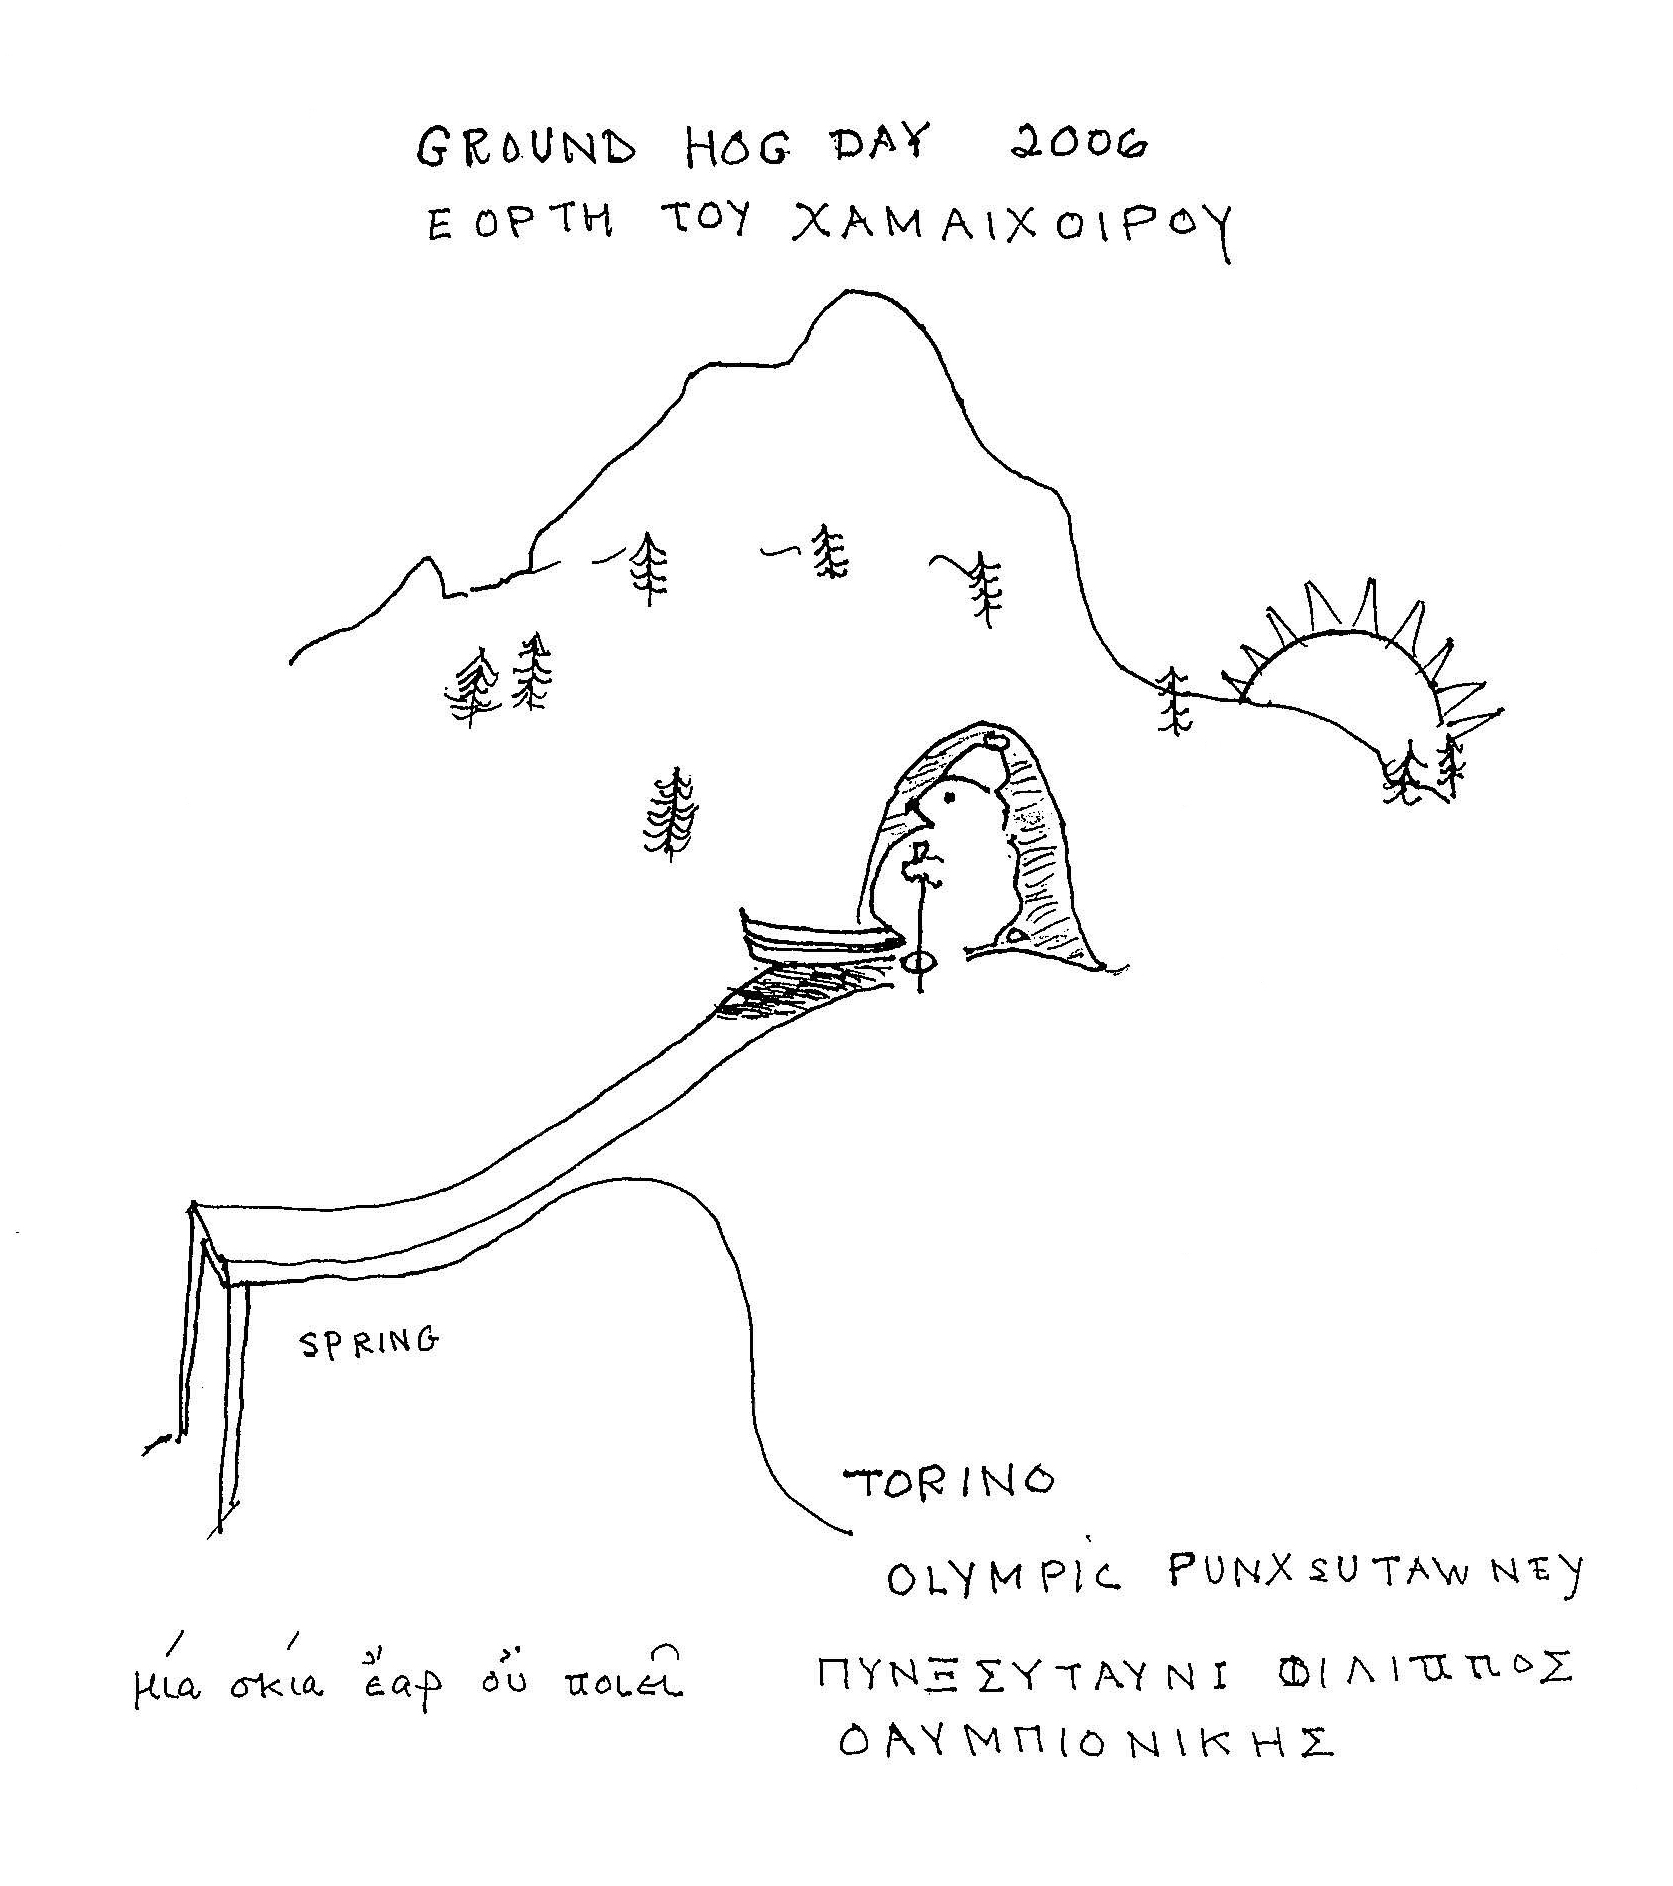 GROUND HOG DAY 2006
ΕΟΡΤΗ ΤΟΥ ΧΑΜΑΙΧΟΙΡΟΥ
SPRING
TORINO
OLYMPIC PUNXSUTAWNEY
μία σκία ἔαρ οὔ ποιεῖ
ΠΥΝΞΣΥΤΑΥΝΙ ΦΙΛΙΠΠΟΣ
ΟΛΥΜΠΙΟΝΙΚΗΣ